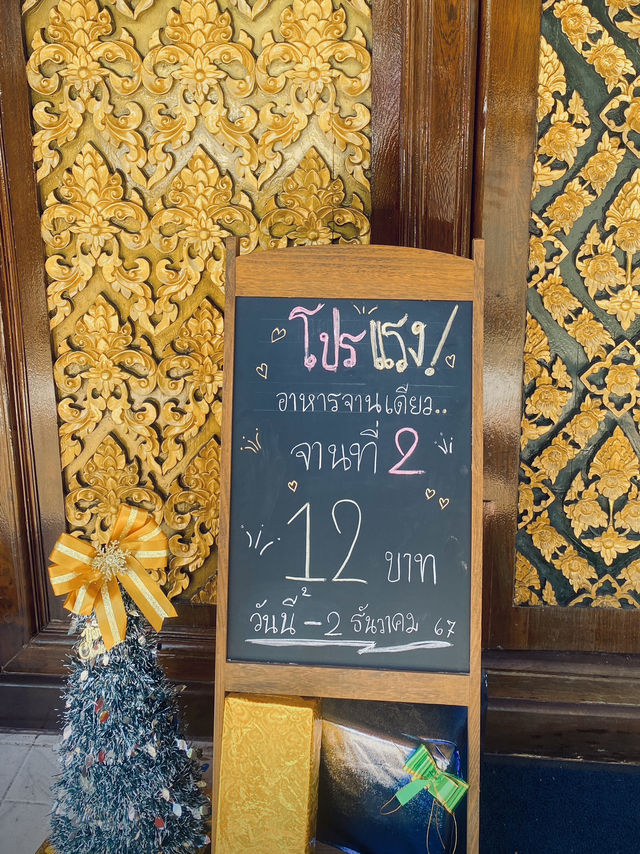 โปรแรง!
อาหารจานเดียว..
จานที่ 2
12 บาท
วันนี้ - 2 ธันวาคม 67